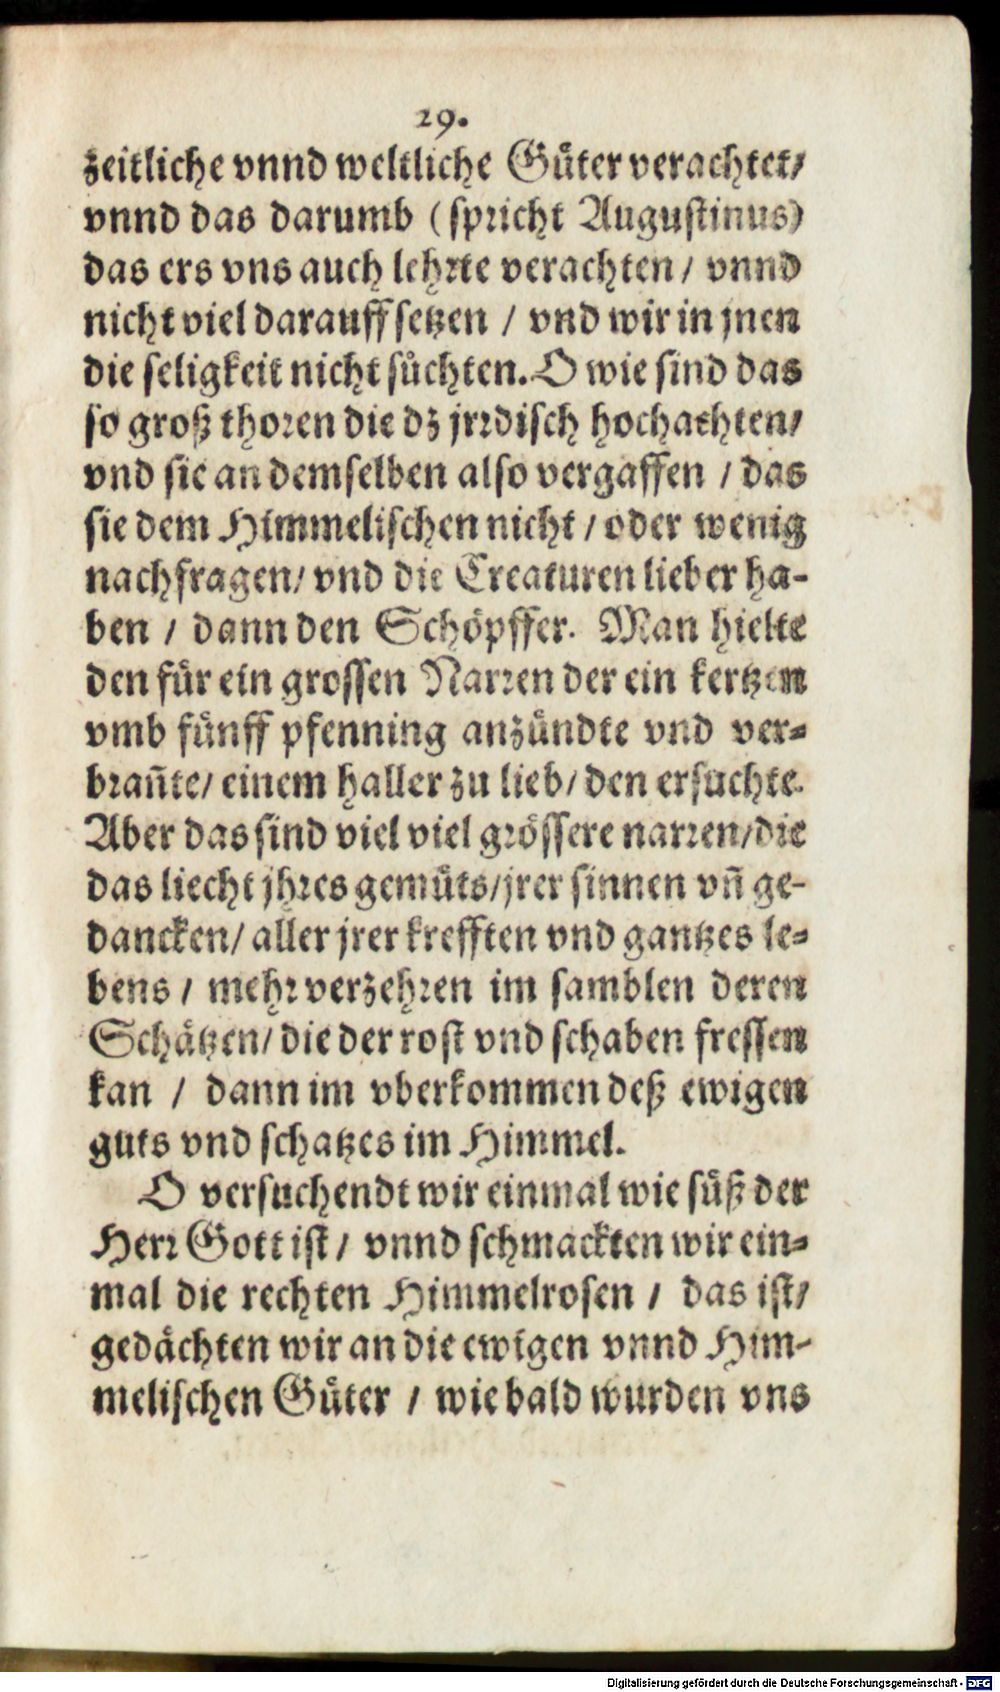 29.
zeitliche vnnd weltliche Gůter verachtet/
vnnd das darumb (spricht Augustinus)
das ers vns auch lehrte verachten / vnnd
nicht viel darauff setzen / vnd wir in jnen
die seligkeit nicht sůchten. O wie sind das
so groß thoren die dz jrrdisch hochachten/
vnd sie an demselben also vergaffen / das
sie dem Himmelischen nicht / oder wenig
nachfragen/ vnd die Creaturen lieber ha-
ben / dann den Schöpffer. Man hielte
den für ein grossen Narren der ein kertzen
vmb fünff pfenning anzündte vnd ver-
brañte/ einem haller zu lieb/ den er suchte.
Aber das sind viel viel grössere narren/die
das liecht jhres gemüts/jrer sinnen vñ ge-
dancken/ aller jrer krefften vnd gantzes le-
bens / mehr verzehren im samblen deren
Schätzen/ die der rost vnd schaben fressen
kan / dann im vberkommen deß ewigen
guts vnd schatzes im Himmel.
O versuchendt wir einmal wie süß der
Herr Gott ist / vnnd schmackten wir ein-
mal die rechten Himmelrosen / das ist/
gedächten wir an die ewigen vnnd Him-
melischen Gůter / wie bald wurden vns
Digitalisierung gefördert durch die Deutsche Forschungsgemeinschaft - DFG